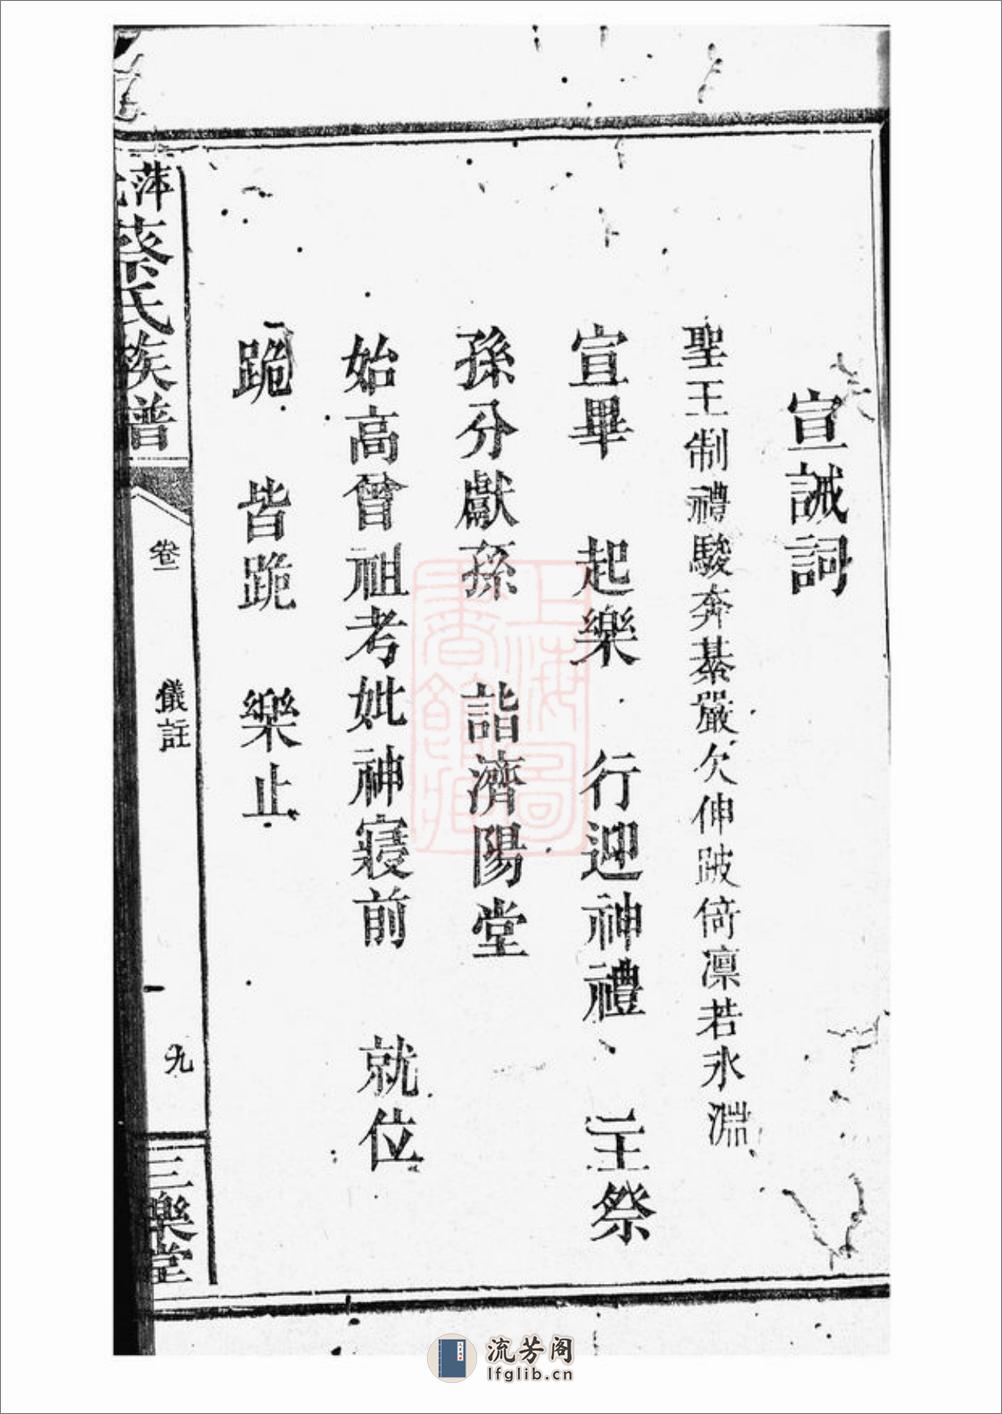 宣誡詞
聖王制禮駿奔綦嚴欠伸跛倚凜若氷淵
宣畢　起樂　行迎神禮　主祭
孫分獻孫　詣濟陽堂
始高曾祖考妣神寢前　就位
跪　皆跪　樂止
萍
蔡氏族譜
卷一
儀註
九
三樂堂
上海圖書館藏
流芳阁
lfglib.cn